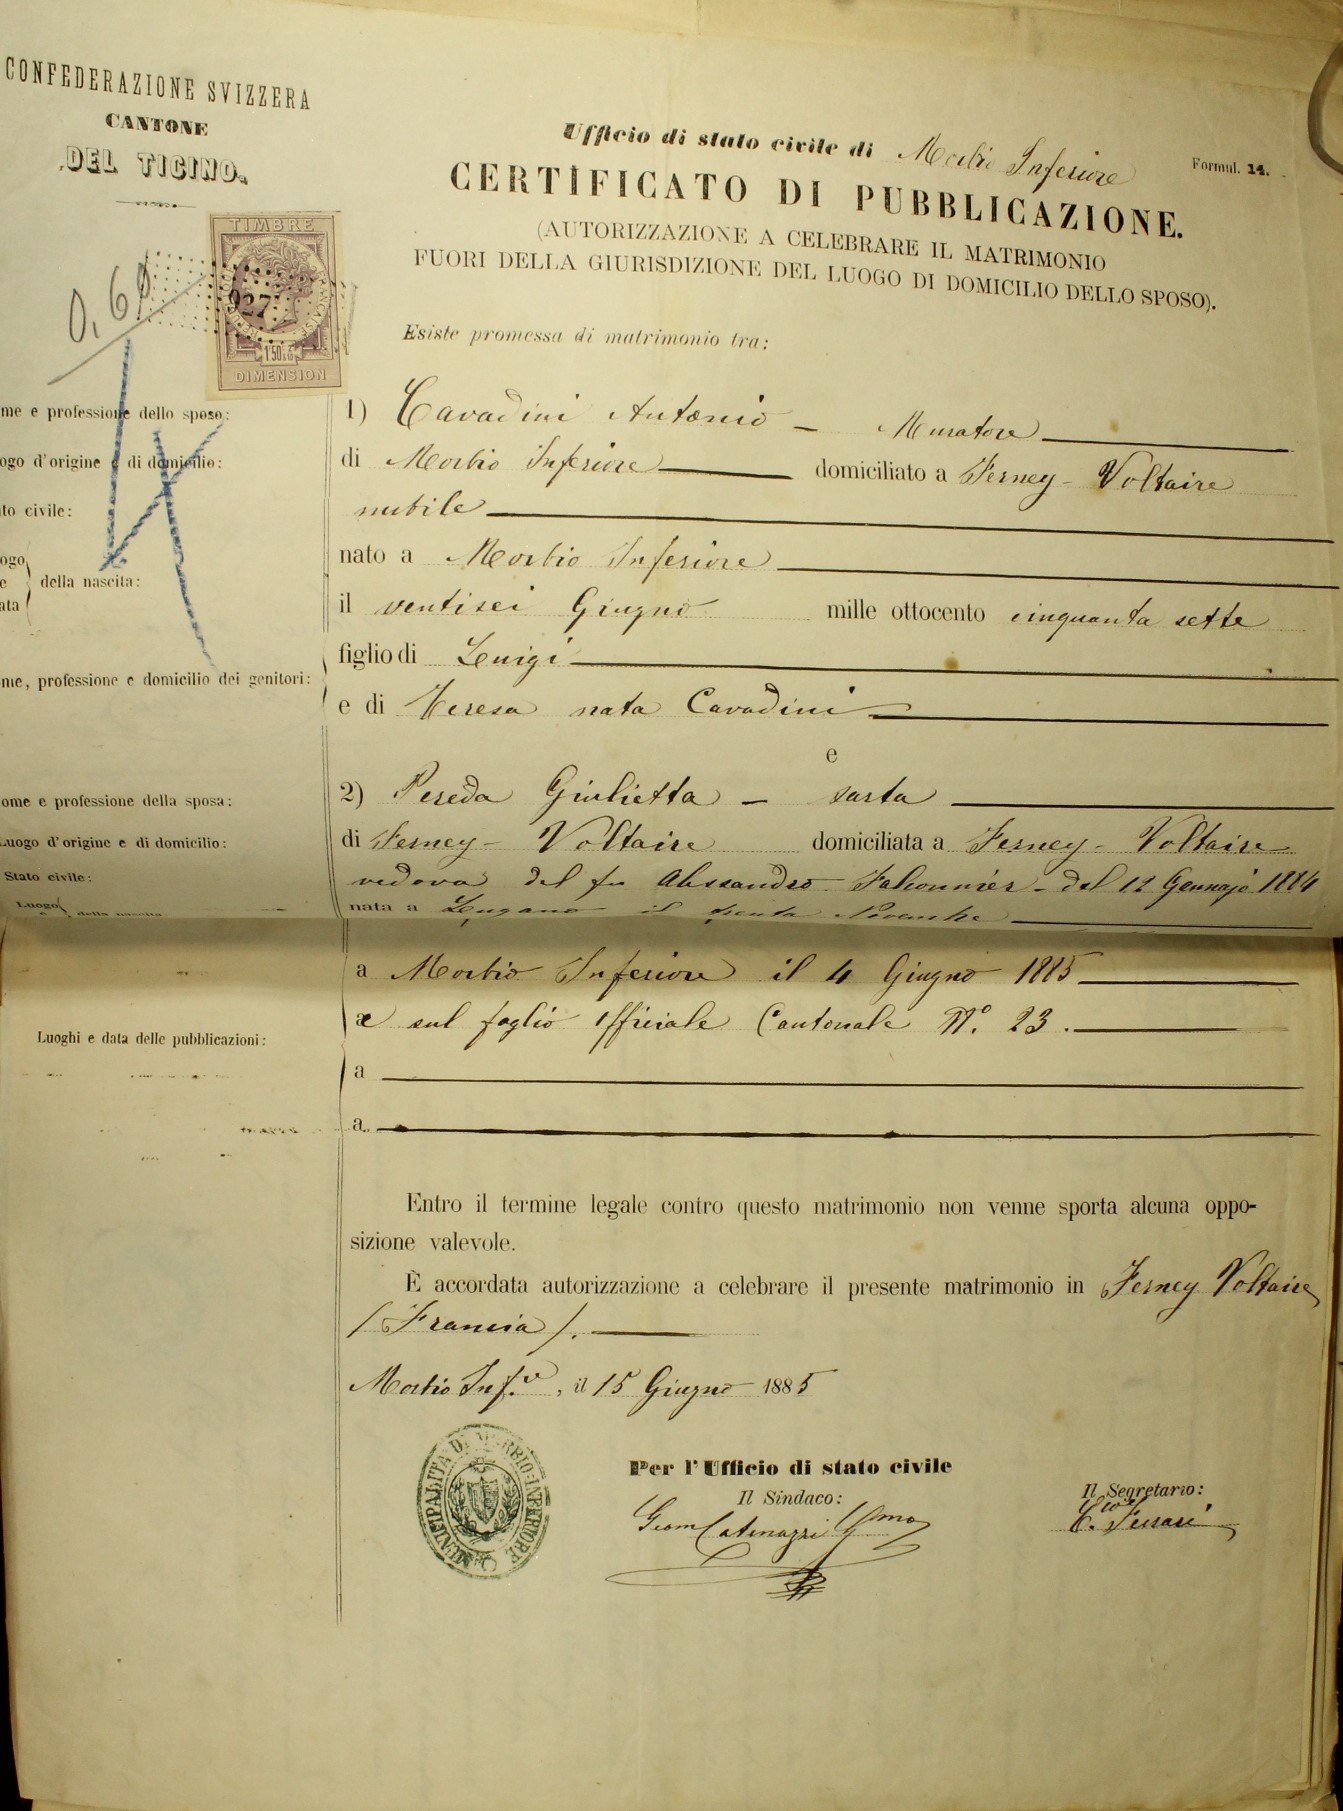 CONFEDERAZIONE SVIZZERA
CANTONE
DEL TICINO.
Ufficio di stato civile di Morbio Inferiore
Formul. 14.
CERTIFICATO DI PUBBLICAZIONE.
(AUTORIZZAZIONE A CELEBRARE IL MATRIMONIO
FUORI DELLA GIURISDIZIONE DEL LUOGO DI DOMICILIO DELLO SPOSO).
TIMBRE
927
1f 50c
DIMENSION
0,60
Esiste promessa di matrimonio tra:
me e professione dello sposo: 1) Cavadini Antonio - Muratore
ogo d'origine e di domicilio: di Morbio Inferiore domiciliato a Ferney - Voltaire
to civile: nubile
ogo
e della nascita:
ata
nato a Morbio Inferiore
il ventisei Giugno mille ottocento cinquanta sette
me, professione e domicilio dei genitori: figlio di Luigi
e di Teresa nata Cavadini
e
ome e professione della sposa: 2) Pereda Giulietta - sarta
Luogo d'origine e di domicilio: di Ferney - Voltaire domiciliata a Ferney - Voltaire
Stato civile: vedova del fu Alessandro Falconnier - del 12 Gennajo 1884
Luogo nata a Lugano il trenta Novembre
a Morbio Inferiore il 4 Giugno 1885
Luoghi e data delle pubblicazioni: e sul foglio officiale Cantonale N.° 23.
a
a
Entro il termine legale contro questo matrimonio non venne sporta alcuna oppo-
sizione valevole.
È accordata autorizzazione a celebrare il presente matrimonio in Ferney Voltaire
(Francia).
Morbio Inf.re, il 15 Giugno 1885
MUNICIPALITÀ DI MORBIO-INFERIORE
Per l'Ufficio di stato civile
Il Sindaco: Il Segretario:
Catenazzi Ferrari